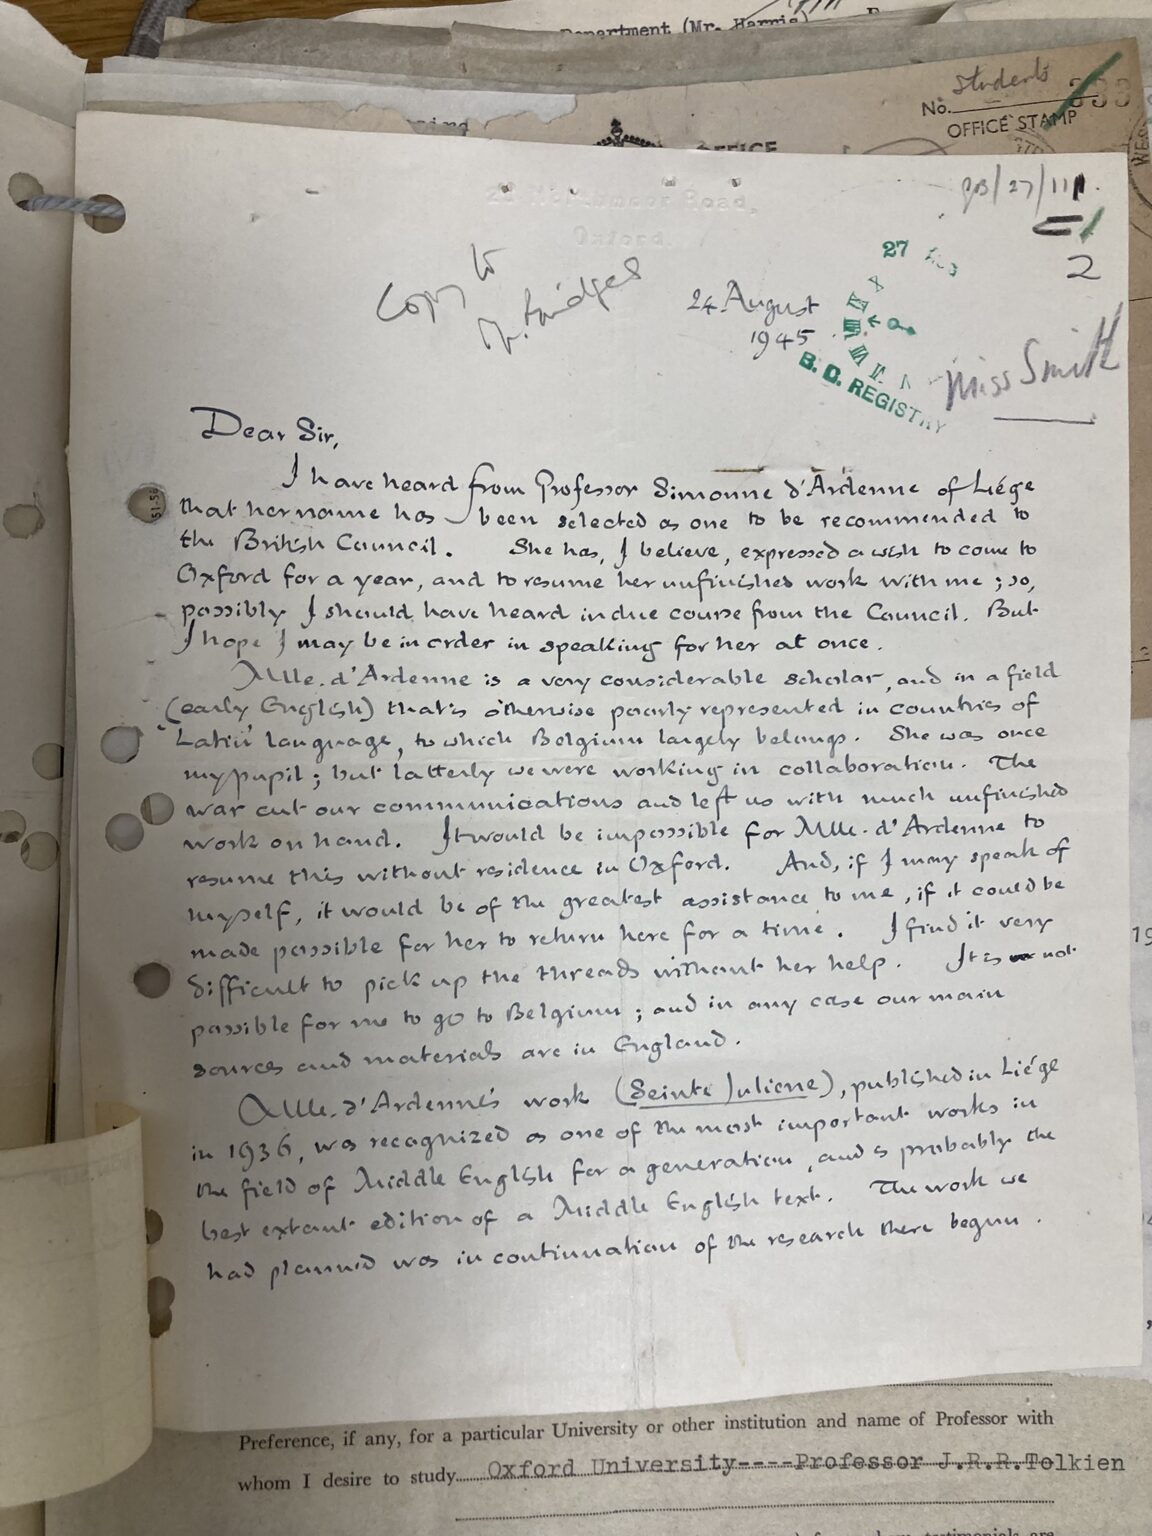 Department (Mr. Harris)
No. students 333
OFFICE STAMP
OFFICE
Road,
Oxford.
GB/27/111.
2
Copy to
Mr. Bridges
27 AUG
24. August
1945
B. C. REGISTRY
Miss Smith
Dear Sir,
I have heard from Professor Simonne d'Ardenne of Liége
that her name has been selected as one to be recommended to
the British Council. She has, I believe, expressed a wish to come to
Oxford for a year, and to resume her unfinished work with me; so,
possibly I should have heard in due course from the Council. But
I hope I may be in order in speaking for her at once.
Mlle. d'Ardenne is a very considerable scholar, and in a field
(early English) that is otherwise poorly represented in countries of
Latin language, to which Belgium largely belongs. She was once
my pupil; but latterly we were working in collaboration. The
war cut our communications and left us with much unfinished
work on hand. It would be impossible for Mlle. d'Ardenne to
resume this without residence in Oxford. And, if I may speak of
myself, it would be of the greatest assistance to me, if it could be
made possible for her to return here for a time. I find it very
difficult to pick up the threads without her help. It is not
possible for me to go to Belgium; and in any case our main
sources and materials are in England.
Mlle. d'Ardenne's work (Seinte Juliene), published in Liége
in 1936, was recognized as one of the most important works in
the field of Middle English for a generation, and is probably the
best extant edition of a Middle English text. The work we
had planned was in continuation of the research there begun.
Preference, if any, for a particular University or other institution and name of Professor with
whom I desire to study Oxford University----Professor J.R.R.Tolkien